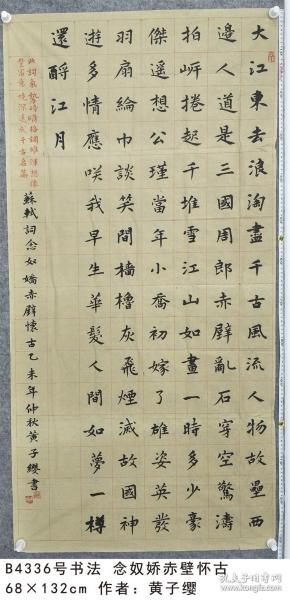 大江東去浪淘盡千古風流人物故壘西
邊人道是三國周郎赤壁亂石穿空驚濤
拍岸捲起千堆雪江山如畫一時多少豪
傑遥想公瑾當年小喬初嫁了雄姿英發
羽扇綸巾談笑間檣櫓灰飛煙滅故國神
遊多情應笑我早生華髮人間如夢一樽
還酹江月
蘇軾詞念奴嬌赤壁懷古乙未年仲秋黄子纓書
B4336号书法 念奴娇赤壁怀古
68×132cm 作者：黄子缨
孔夫子旧书网